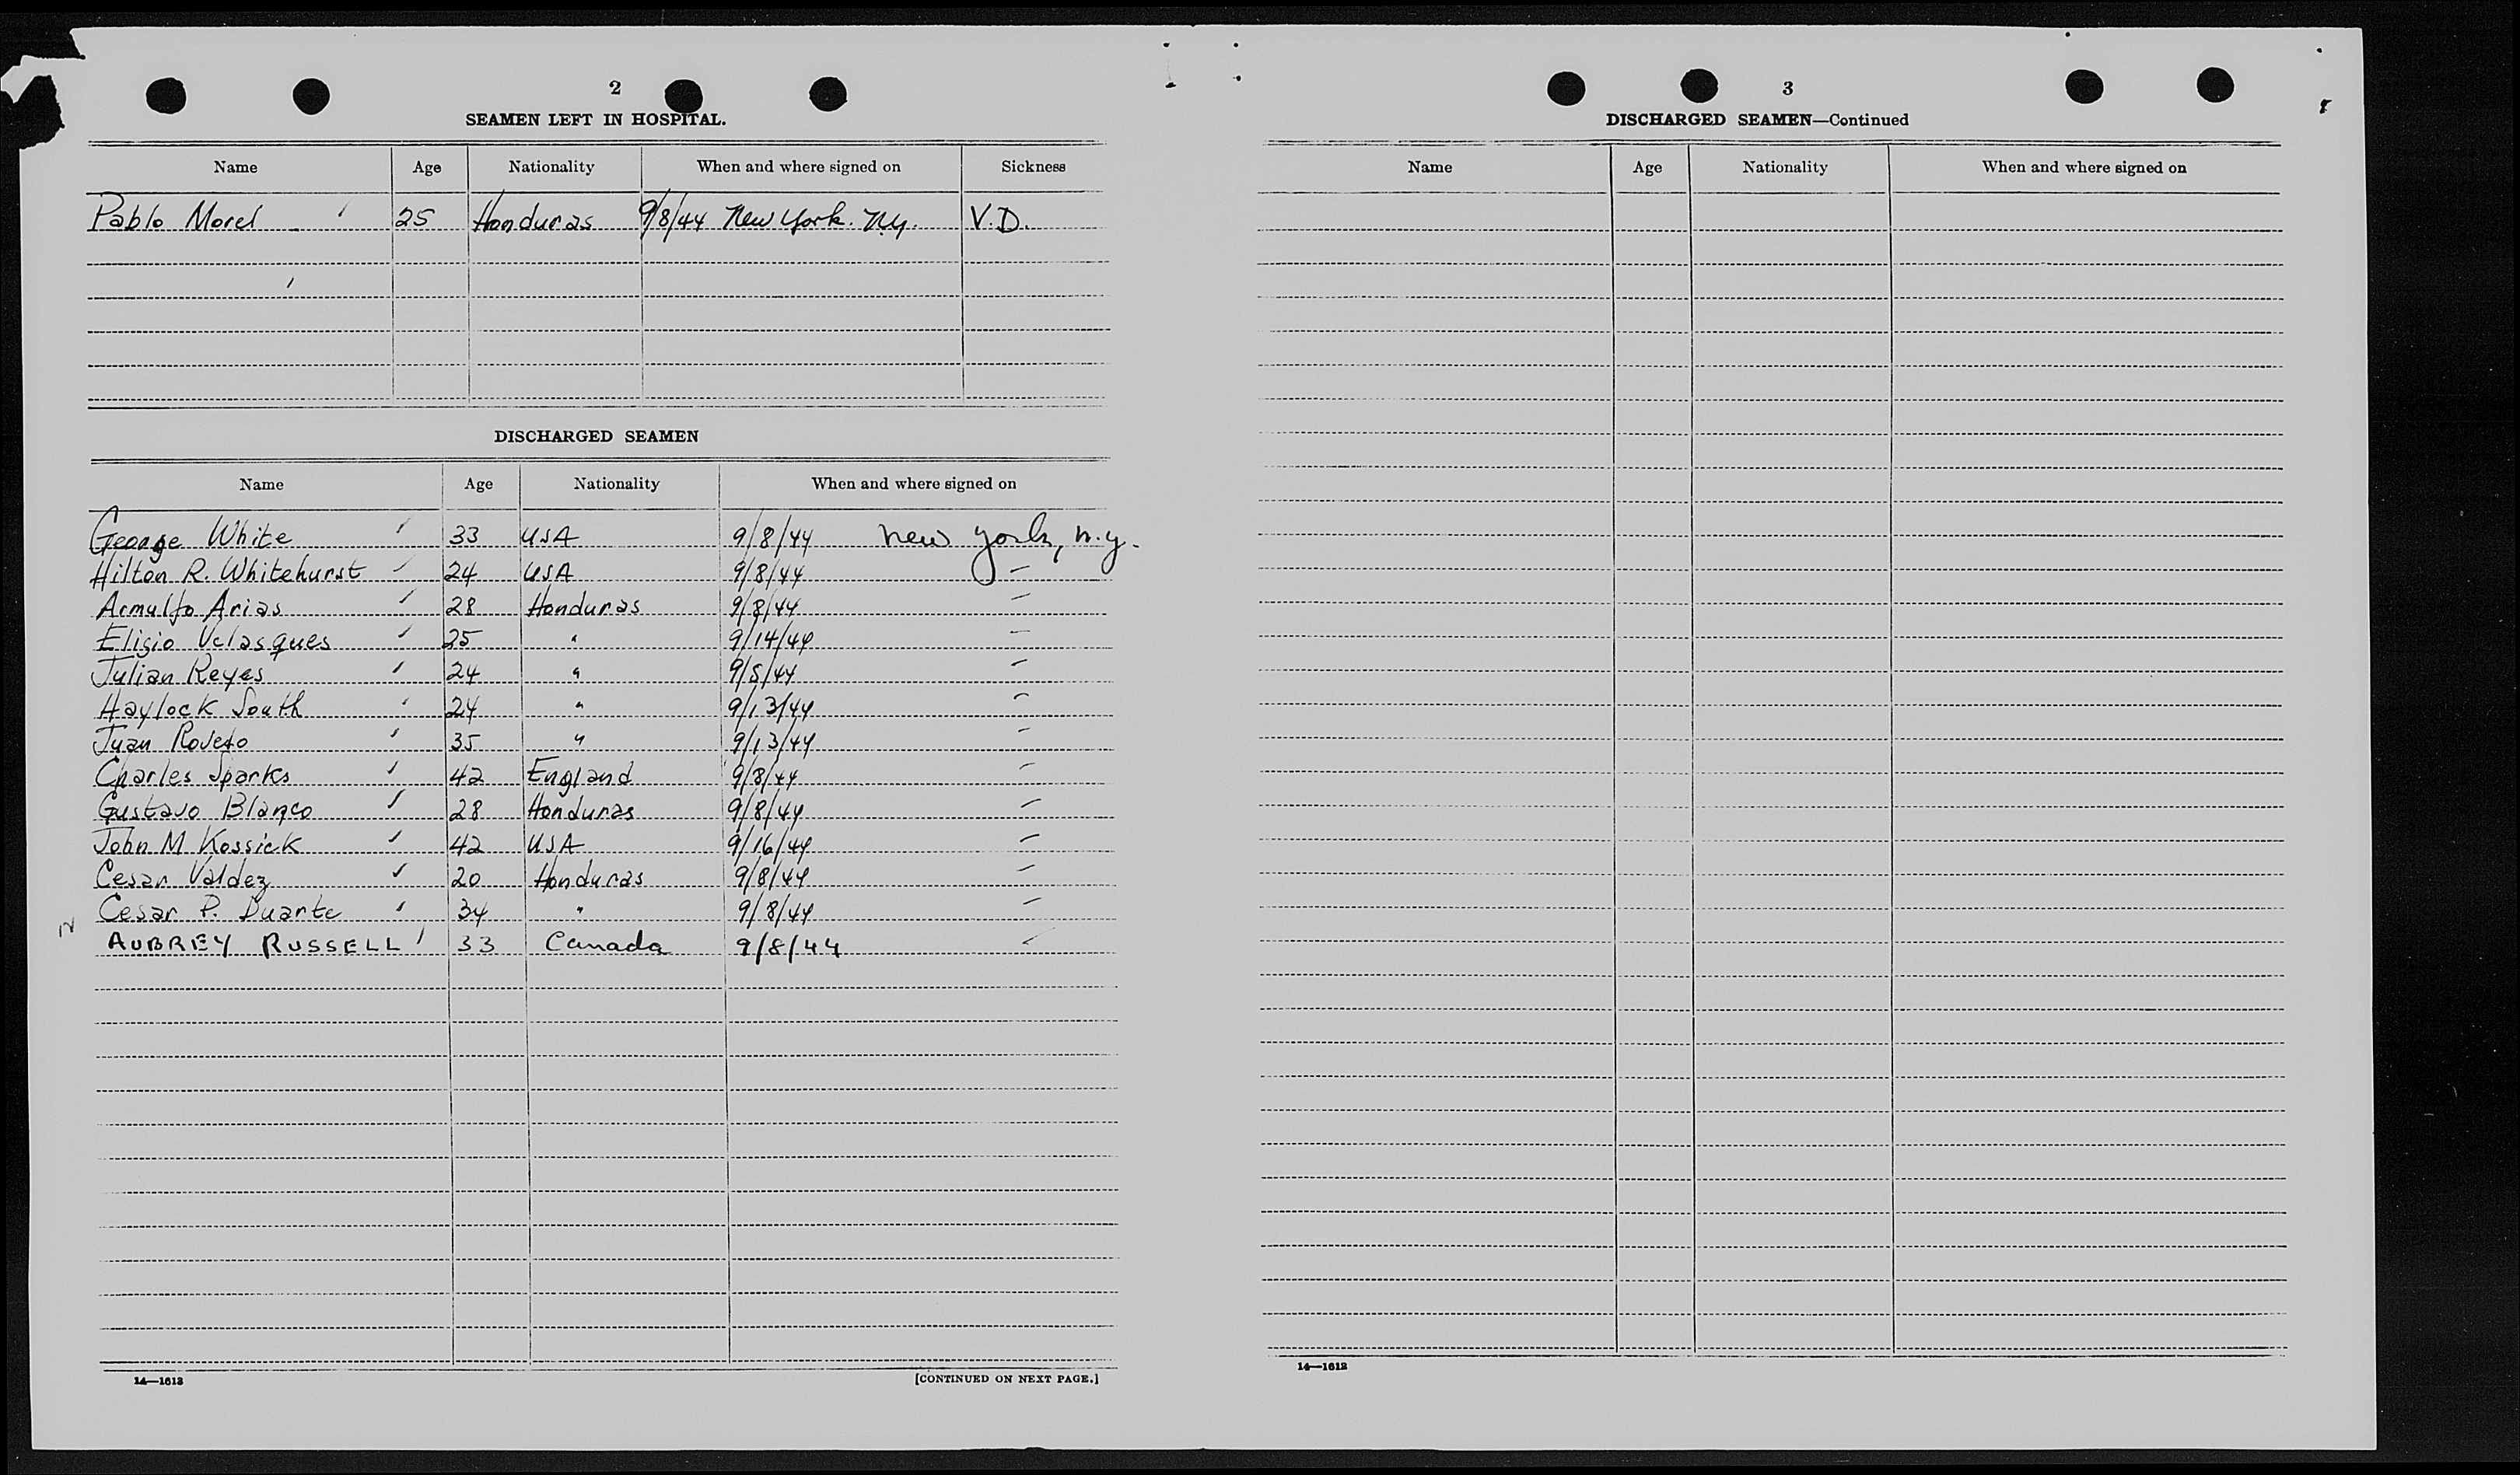 2
SEAMEN LEFT IN HOSPITAL.
Name Age Nationality When and where signed on Sickness
Pablo Morel 25 Honduras 9/8/44 New York. N.Y. V.D.
DISCHARGED SEAMEN
Name Age Nationality When and where signed on
George White 33 USA 9/8/44 New York, N.Y.
Hilton R. Whitehurst 24 USA 9/8/44 —
Arnulfo Arias 28 Honduras 9/8/44 —
Eligio Velasques 25 " 9/14/44 —
Julian Reyes 24 " 9/5/44 —
Haylock South 24 " 9/13/44 —
Juan 35 " 9/13/44 —
Charles Sparks 42 England 9/8/44 —
Gustavo Blanco 28 Honduras 9/8/44 —
John M Kossick 42 USA 9/16/44 —
Cesar Valdez 20 Honduras 9/8/44 —
Cesar P. Duarte 34 " 9/8/44 —
AUBREY RUSSELL 33 Canada 9/8/44
14—1613
[CONTINUED ON NEXT PAGE.]
3
DISCHARGED SEAMEN—Continued
Name Age Nationality When and where signed on
14—1613